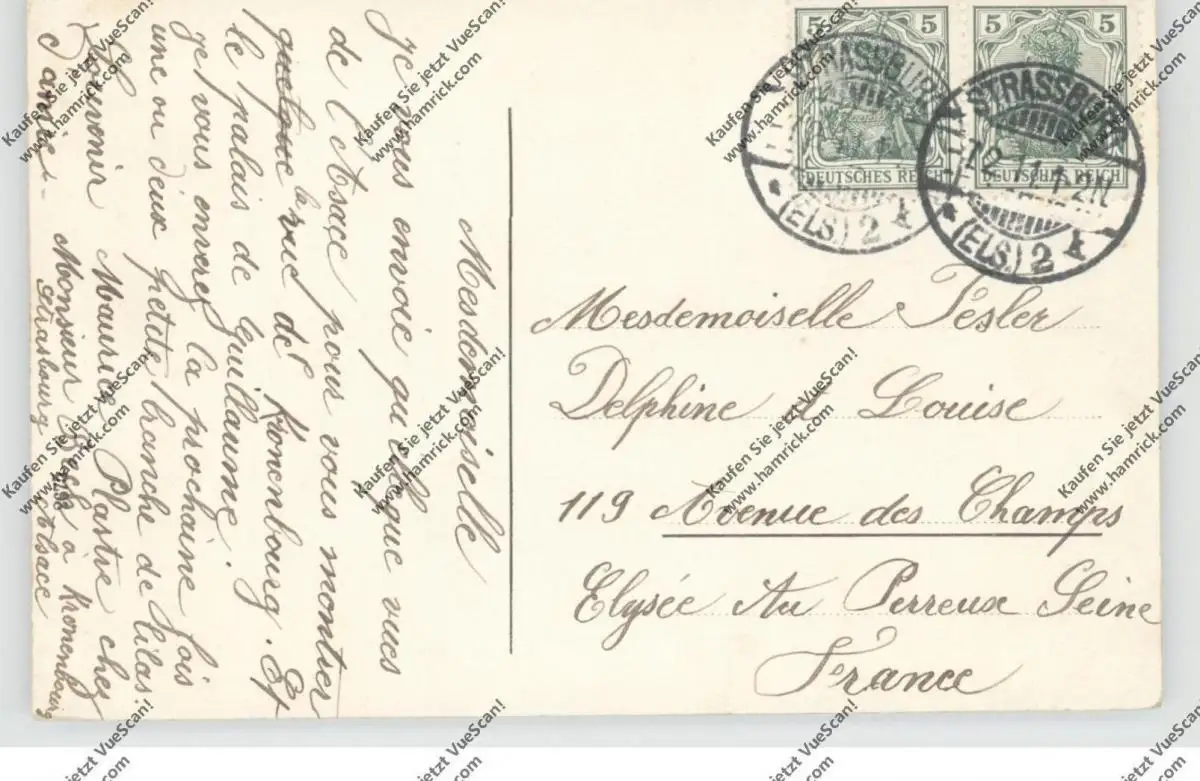 5 5 5 5
STRASSBURG
(ELS.) 2 k
STRASSBURG
12.11.1-2N
(ELS.) 2 k
DEUTSCHES REICH DEUTSCHES REICH
Mesdemoiselle Tésler
Delphine et Louise
119 Avenue des Champs
Elysée Au Perreux Seine
France
Mesdemoiselle
Je vous envoie quellque vues
de l'Alsace pour vous montrer
quelque la rue de Kronenbourg. Et
le palais de Guillaume.
je vous enverez la prochaine fois
une ou deux petite branche de lilas.
Souvenir Maurice Plastre chez
Monsieur à Kronenbourg
Strasbourg Alsace
Kaufen Sie jetzt VueScan!
www.hamrick.com